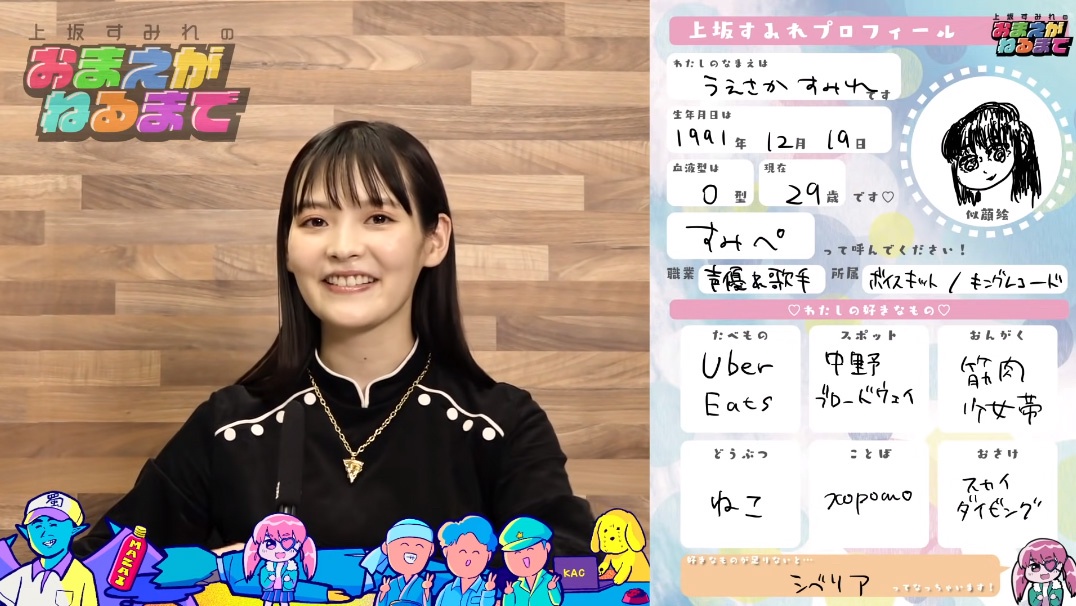 上坂すみれの
おまえが
ねるまで
蜀
MAZAI
KAC
上坂すみれプロフィール
上坂すみれの
おまえが
ねるまで
わたしのなまえは
うえさか すみれです
生年月日は
1991年 12月 19日
血液型は
O型
現在
29歳 です♡
すみぺ って呼んでください！
似顔絵
職業 声優&歌手 所属 ボイスキット / キングレコード
♡わたしの好きなもの♡
たべもの
Uber
Eats
スポット
中野
ブロードウェイ
おんがく
筋肉
少女帯
どうぶつ
ねこ
ことば
xopomo
おさけ
スカイ
ダイビング
好きなものが足りないと…
シベリア ってなっちゃいます！